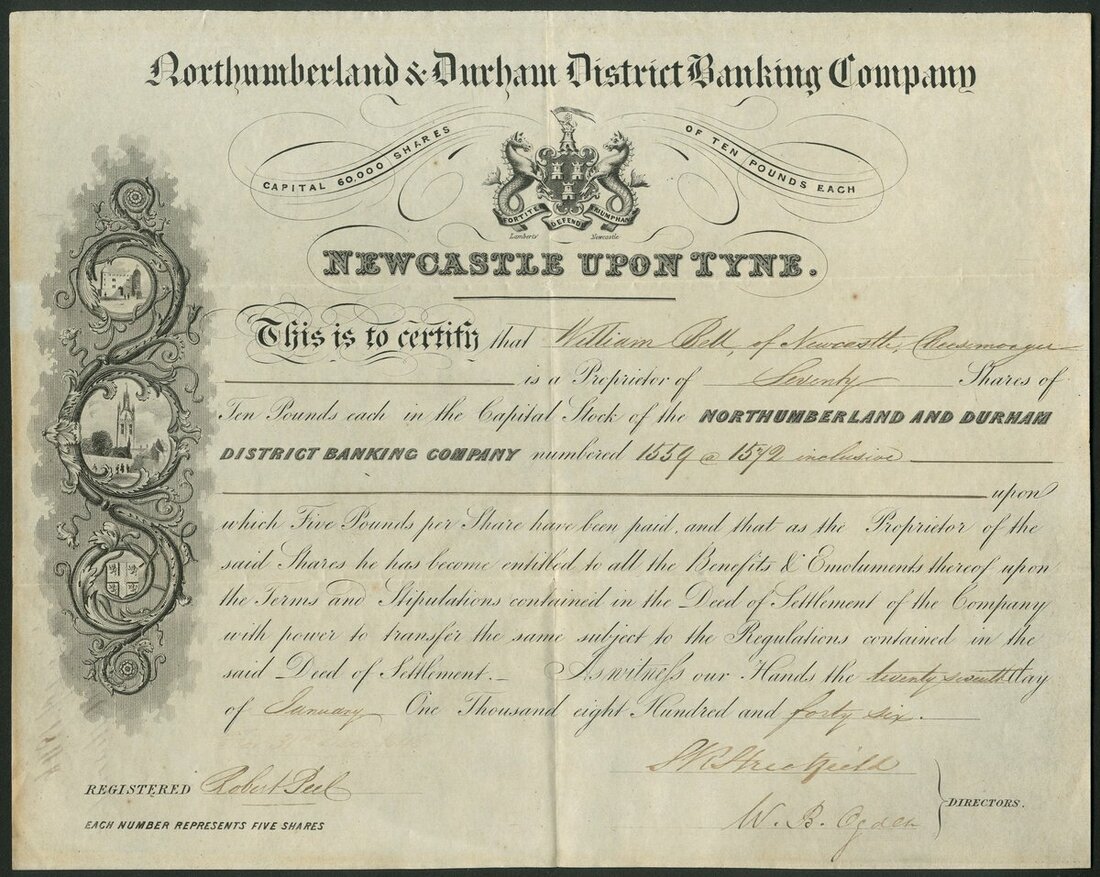 Northumberland & Durham District Banking Company
CAPITAL 60,000 SHARES OF TEN POUNDS EACH
FORTITER DEFENDIT TRIUMPHANS
Lambert Newcastle
NEWCASTLE UPON TYNE.
This is to certify that William Bell, of Newcastle, Cheesemonger
is a Proprietor of Seventy Shares of
Ten Pounds each in the Capital Stock of the NORTHUMBERLAND AND DURHAM
DISTRICT BANKING COMPANY numbered 1559 a 1572 inclusive
upon
which Five Pounds per Share have been paid, and that as the Proprietor of the
said Shares he has become entitled to all the Benefits & Emoluments thereof upon
the Terms and Stipulations contained in the Deed of Settlement of the Company
with power to transfer the same subject to the Regulations contained in the
said Deed of Settlement. As witness our Hands the twenty seventh day
of January One Thousand eight Hundred and forty six.
REGISTERED Robert Peel
W. B. Ogden
DIRECTORS.
EACH NUMBER REPRESENTS FIVE SHARES